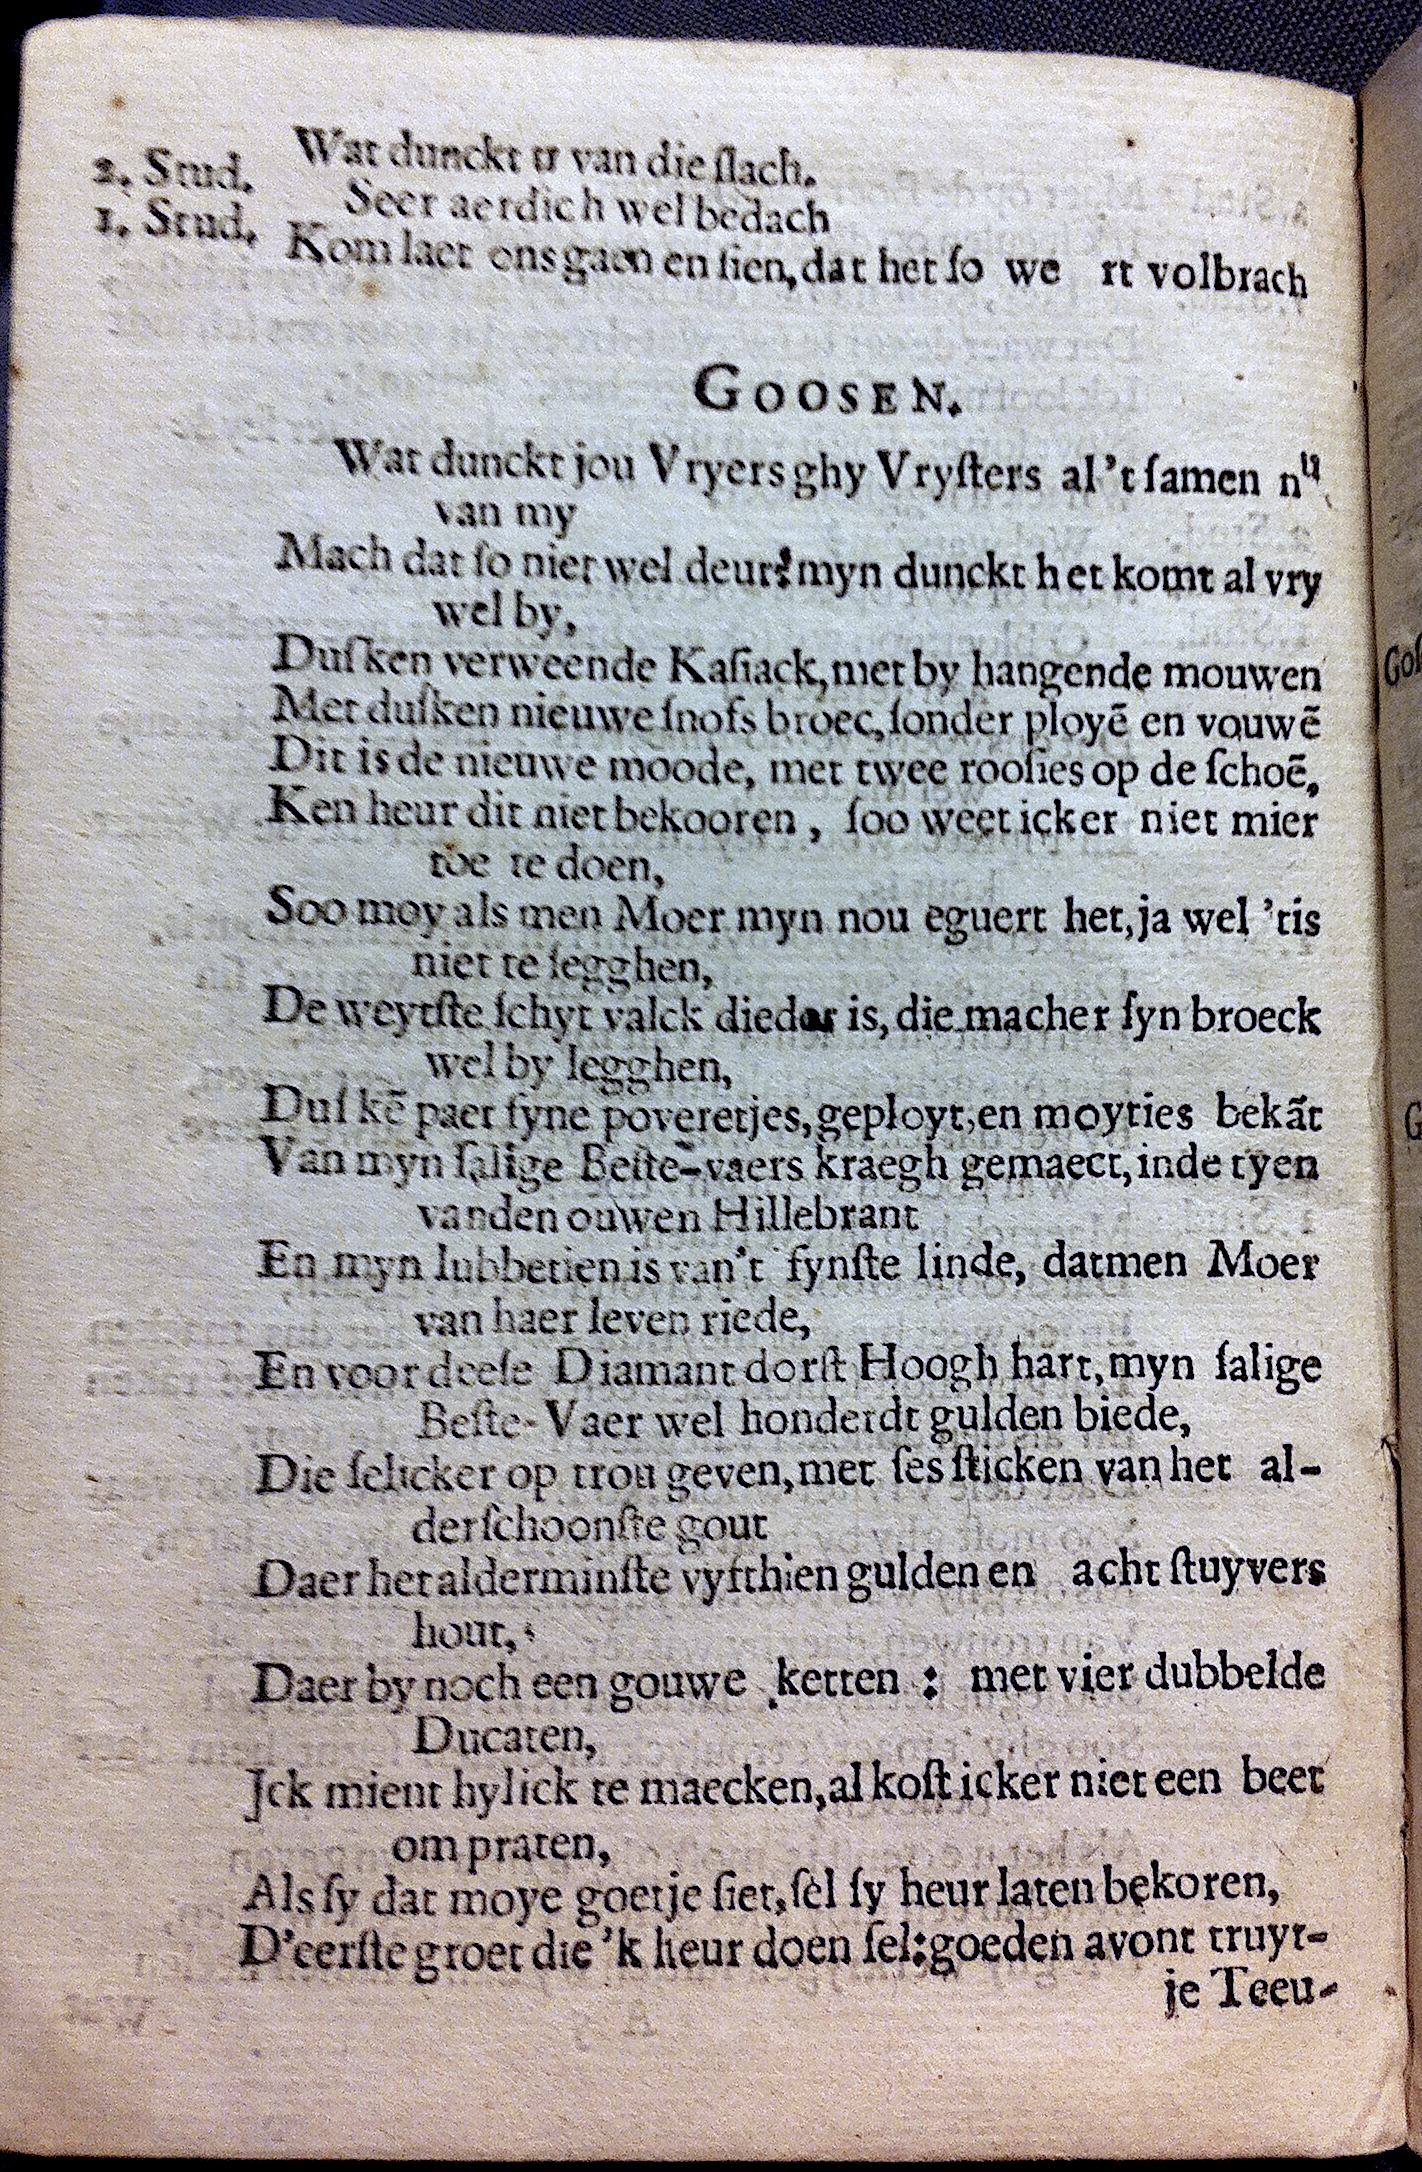 Wat dunckt u van die ſlach.
2. Stud. Seer aerdich wel bedach
1. Stud. Kom laet ons gaen en ſien, dat het ſo we rt volbrach
GOOSEN.
Wat dunckt jou Vryers ghy Vryſters al 't ſamen nu
van my
Mach dat ſo niet wel deur? myn dunckt het komt al vry
wel by,
Duſken verweende Kaſiack, met by hangende mouwen
Met duſken nieuwe ſnofs broec, ſonder ployẽ en vouwẽ
Dit is de nieuwe moode, met twee rooſies op de ſchoẽ,
Ken heur dit niet bekooren, ſoo weet icker niet mier
toe te doen,
Soo moy als men Moer myn nou eguert het, ja wel 'tis
niet te ſegghen,
De weytſte ſchyt valck dieder is, die macher ſyn broeck
wel by legghen,
Duſ kẽ paer ſyne poveretjes, geployt, en moyties bekãt
Van myn ſalige Beſte-vaers kraegh gemaect, inde tyen
vanden ouwen Hillebrant
En myn lubbetien is van't fynſte linde, datmen Moer
van haer leven riede,
En voor deeſe Diamant dorſt Hoogh hart, myn ſalige
Beſte-Vaer wel honderdt gulden biede,
Die ſelicker op trou geven, met ſes ſticken van het al-
derſchoonſte gout
Daer het alderminſte vyfthien gulden en acht ſtuyvers
hout,
Daer by noch een gouwe ketten: met vier dubbelde
Ducaten,
Jck mient hylick te maecken, al koſt icker niet een beet
om praten,
Als ſy dat moye goetje ſiet, ſel ſy heur laten bekoren,
D'eerſte groet die 'k heur doen ſel: goeden avont truyt-
je Teeu-